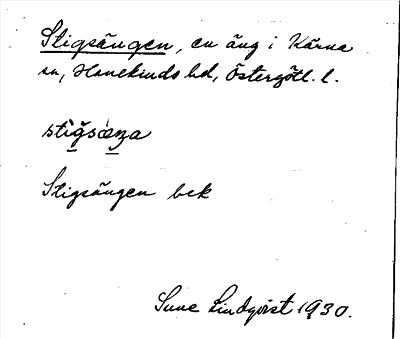 Stigsängen, en äng i Kärna
sn, Hanekinds hd, Östergötl. l.
stìğsæ̀ŋa
Stigsängen bek
Sune Lindqvist 1930.